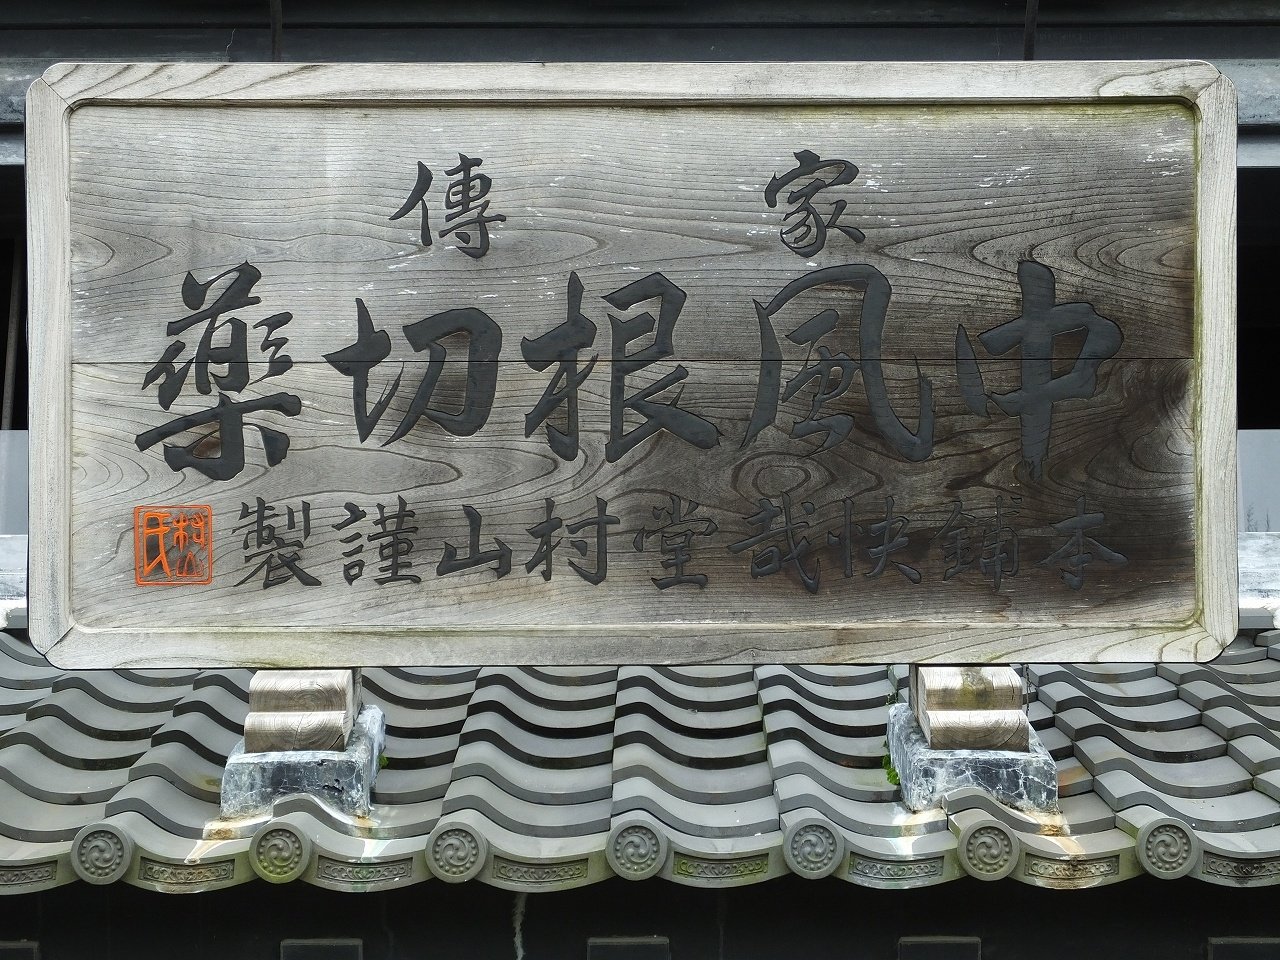 家傳
中風根切藥
本舖快哉堂村山謹製